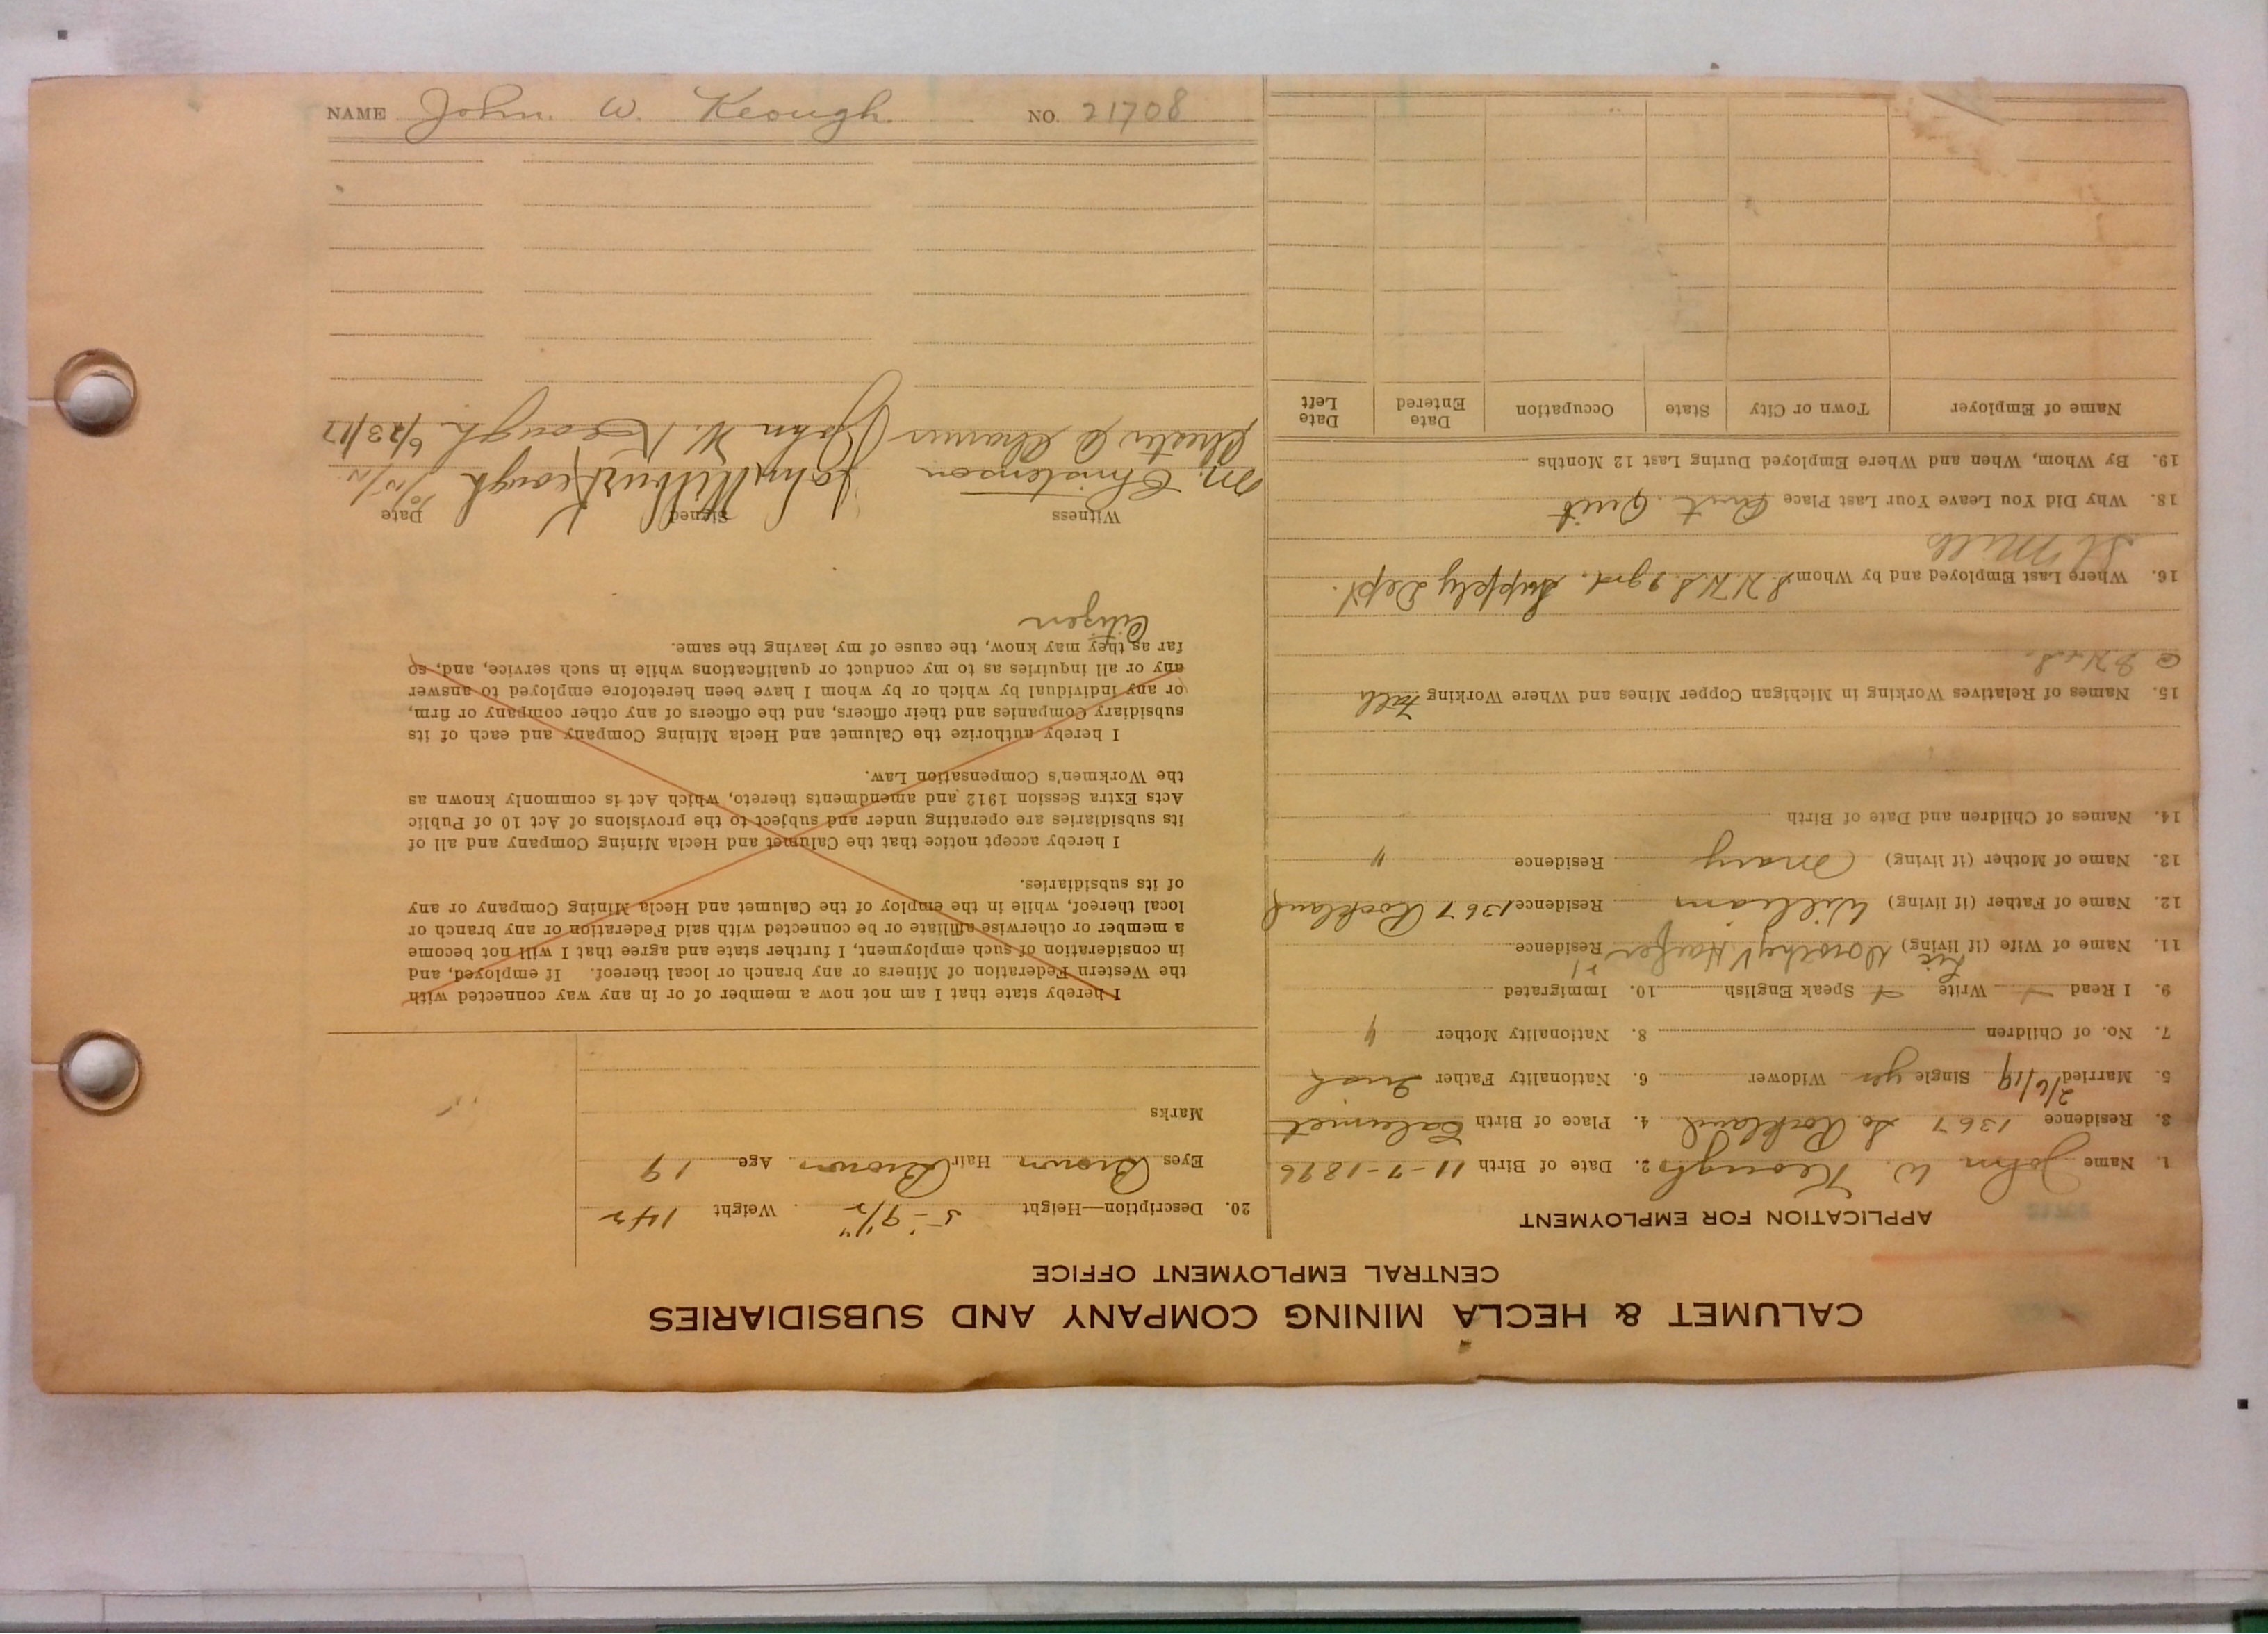 NAME John. W. Keough. NO. 21708
CALUMET & HECLA MINING COMPANY AND SUBSIDIARIES
CENTRAL EMPLOYMENT OFFICE
APPLICATION FOR EMPLOYMENT
1. Name John W. Keough 2. Date of Birth 11-7-1896
3. Residence 1367 So. Rockland. 4. Place of Birth Calumet
5. Married 2/6/19 Single yes Widower 6. Nationality Father Irish
7. No. of Children 8. Nationality Mother "
9. I Read Write Speak English 10. Immigrated
11. Name of Wife (if living) Dorothy V. Residence
12. Name of Father (if living) William Residence 1367 Rockland
13. Name of Mother (if living) Mary Residence "
14. Names of Children and Date of Birth
15. Names of Relatives Working in Michigan Copper Mines and Where Working
16. Where Last Employed and by Whom Supply Dept.
18. Why Did You Leave Your Last Place Quit
19. By Whom, When and Where Employed During Last 12 Months
Name of Employer Town or City State Occupation Date Entered Date Left
20. Description—Height 5'-9 1/2" Weight 142
Eyes Brown Hair Brown Age 19
Marks
I hereby state that I am not now a member of or in any way connected with
the Western Federation of Miners or any branch or local thereof. If employed, and
in consideration of such employment, I further state and agree that I will not become
a member or otherwise affiliate or be connected with said Federation or any branch or
local thereof, while in the employ of the Calumet and Hecla Mining Company or any
of its subsidiaries.
I hereby accept notice that the Calumet and Hecla Mining Company and all of
its subsidiaries are operating under and subject to the provisions of Act 10 of Public
Acts Extra Session 1912 and amendments thereto, which Act is commonly known as
the Workmen's Compensation Law.
I hereby authorize the Calumet and Hecla Mining Company and each of its
subsidiary Companies and their officers, and the officers of any other company or firm,
or any individual by which or by whom I have been heretofore employed to answer
any or all inquiries as to my conduct or qualifications while in such service, and, so
far as they may know, the cause of my leaving the same.
Citizen
Witness Signed Date
M. Christenson John Wilbur Keough
John W. Keough 6/23/17